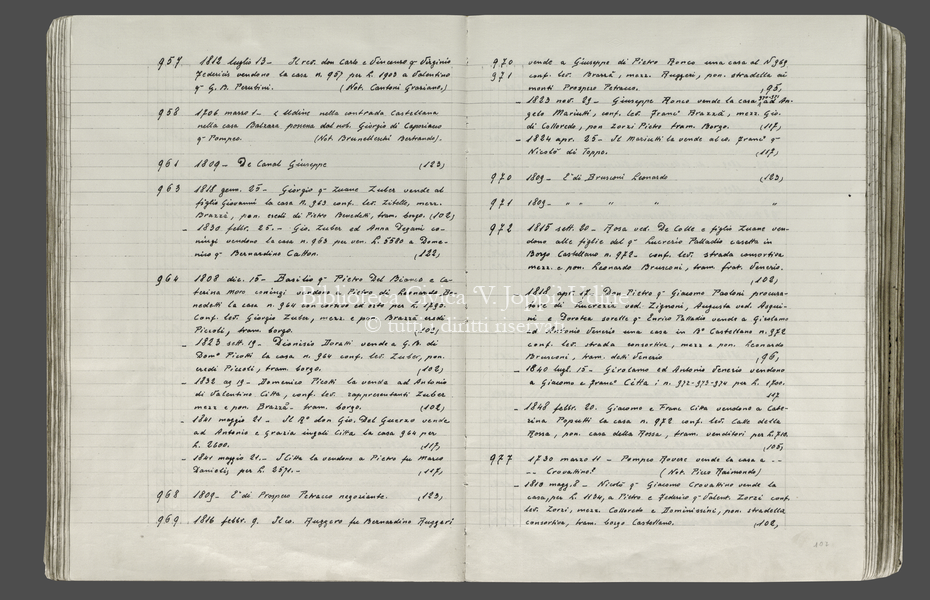 957 1812 luglio 13 - Il rev. don Carlo e Vincenzo q. Virginio
Federicis vendono la casa n. 957 per L. 1903 a Valentino
q. G. B. Perutini. (Not. Cantoni Graziano.)
958 1706 marzo 1 - Udine nella contrada Castellana
nella casa Balzara posseна dal nob. Giorgio di Caporiacco
q. Pompeo. (Not. Brunelleschi Bertrando).
961 1809 - De Canal Giuseppe (123)
963 1818 genn. 25 - Giorgio q. Zuane Zuber vende al
figlio Giovanni la casa n. 963 conf. lev. Zitelle, mezz.
Brazzà, pon. eredi di Pietro Benedetti, tram. borgo. (102)
- 1830 febbr. 25. - Gio. Zuber ed Anna Degani co-
niugi vendono la casa n. 963 per ven. L. 5580 a Dome-
nico q. Bernardino Catton. (122)
964 1808 dic. 15 - Basilio q. Pietro Del Bianco e Ca-
terina Moro coniugi vendono a Pietro di Leonardo Be-
nedetti la casa n. 964 con corte ed orto per L. 1790.
Conf. lev. Giorgio Zuber, mezz. e pon. Brazzà eredi
Piccoli, tram. borgo. (102)
- 1823 sett. 19 - Dionisio Doratti vende a G. B. di
Dom.º Picotti la casa n. 964 conf. lev. Zuber, pon.
eredi Piccoli, tram. borgo. (102)
- 1832 ag. 19 - Domenico Picotti la vende ad Antonio
di Valentino Citta, conf. lev. rappresentanti Zuber
mezz. e pon. Brazzà - tram. borgo. (102)
- 1841 maggio 21 - Il R.º don Gio. Del Guerzo vende
ad Antonio e Grazia iugali Citta la casa 964 per
L. 2600. (117)
- 1841 maggio 21. - I Citta la vendono a Pietro fu Marco
Danielis, per L. 2571. - (117)
968 1809 - E.di Prospero Petracco negoziante. (123)
969 1816 febbr. 9. Il co. Ruggero fu Bernardino Ruggeri
970 vende a Giuseppe di Pietro Ronco una casa al N. 969
971 conf. lev. Brazzà, mezz. Ruggeri, pon. stradella ai
monti Prospero Petracco. (95)
- 1823 nov. 29 - Giuseppe Ronco vende la casa 970-971 ad An-
gelo Mariutti, conf. lev. Franc.º Brazzà, mezz. Gio.
di Colloredo, pon. Zorzi Pietro tram. Borgo. (117)
- 1824 apr. 25 - Il Mariutti la vende al co. Franc.º q.
Nicolò di Toppo. (117)
970 1809 - E.di Brusconi Leonardo (123)
971 1809 - " " " " "
972 1815 sett. 20 - Rosa ved. De Colle e figlio Zuane ven-
dono alle figlie del q. Lucrezio Palladio casetta in
Borgo Castellano n. 972 - conf. lev. strada consortiva
mezz. e pon. Leonardo Brusconi, tram. frat. Venerio.
(102)
- 1818 apr. 15 - Don Pietro q. Giacomo Paoloni procura-
tore di Lucrezia ved. Zignoni, Augusta ved. Asqui-
ni e Dorotea sorelle q. Enrico Palladio vende a Girolamo
ed Antonio Venerio una casa in B.º Castellano n. 972
conf. lev. strada consortiva, mezz. e pon. Leonardo
Brusconi, tram. detti Venerio (96)
- 1840 lugl. 15 - Girolamo ed Antonio Venerio vendono
a Giacomo e Franc.º Citta i n. 972-973-974 per L. 1700.
117
- 1848 febbr. 20. Giacomo e Franc. Citta vendono a Cate-
rina Poputti la casa n. 972 conf. lev. Calle della
Rossa, pon. casa della Rossa, tram. venditori per L. 710.
(105)
977 1730 marzo 11 - Pompeo Rovere vende la casa a - -
- - Crovattino! (Not. Pieri Raimondo)
- 1813 magg. 8 - Nicolò q. Giacomo Crovattino vende la
casa, per L. 1134, a Pietro e Federico q. Valent. Zorzi conf.
lev. Zorzi, mezz. Colloredo e Dominissini, pon. stradella
consortiva, tram. borgo Castellano. (102)
Biblioteca Civica 'V. Joppi' Udine
© tutti i diritti riservati